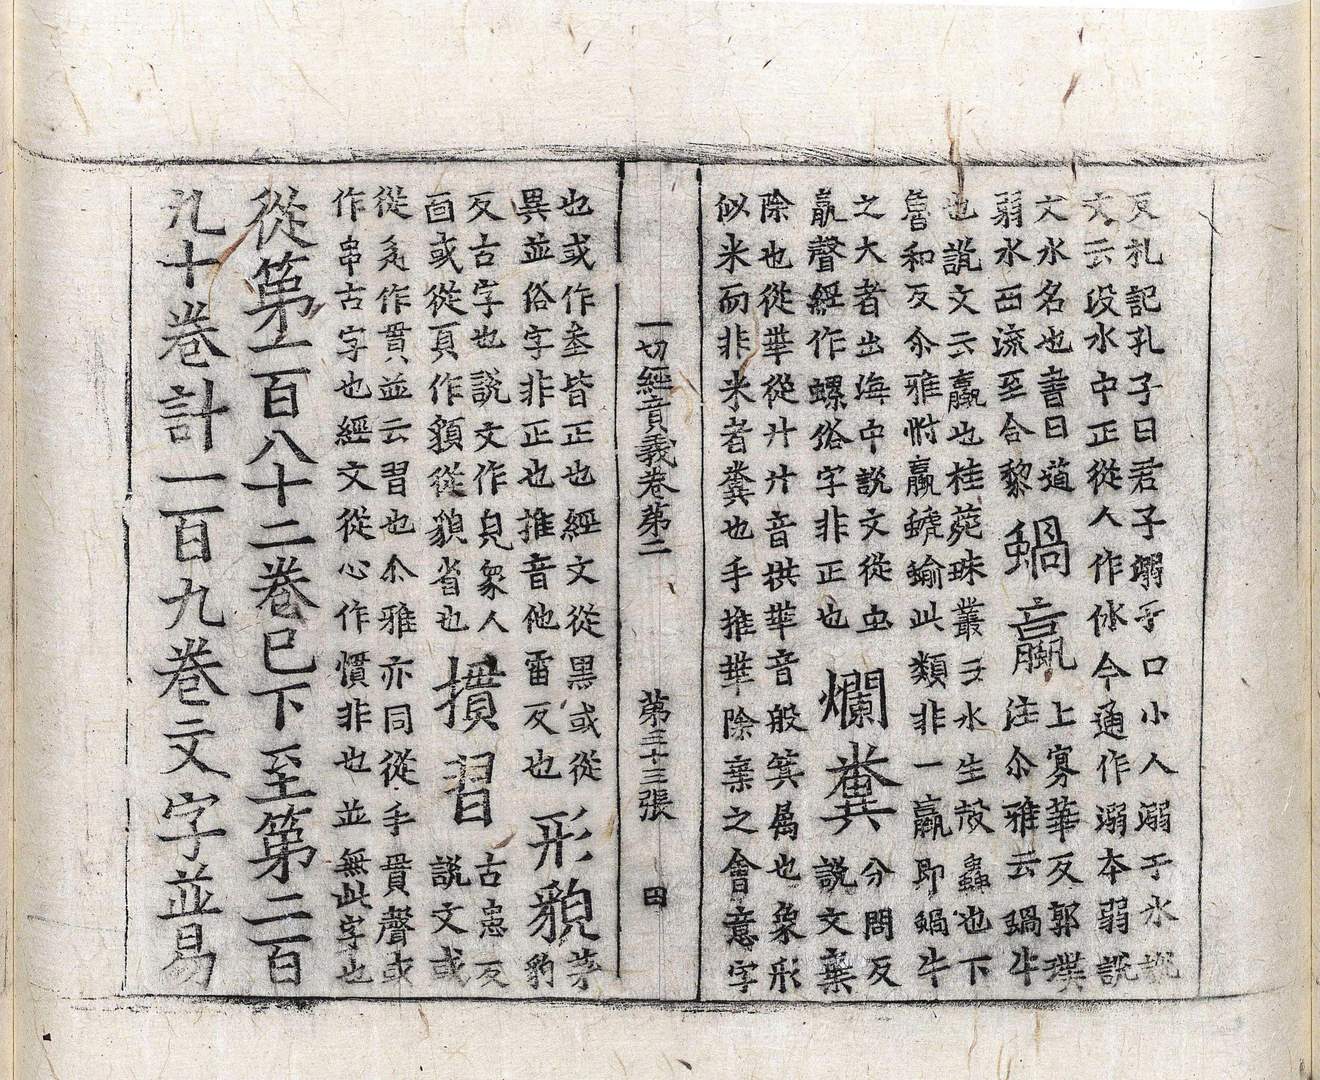 反礼記孔子曰君子溺于口小人溺于水說
文云沒水中正從人作㲻今通作溺本弱說
文水名也書曰道
弱水西流至合黎
蝸蠃
上寡華反郭璞
注尒雅云蝸牛
也說文云蠃也桂菀珠叢云水生殼蟲也下
魯和反尒雅蚹蠃螔蝓此類非一蠃即蝸牛
之大者出海中說文從虫
蠃聲經作螺俗字非正也
爛糞
分問反
說文棄
除也從華從廾廾音拱華音般箕屬也象形
似米而非米者糞也手推華除棄之會意字
一切經音義卷第二
第三十三張
田
也或作㙜皆正也經文從黑或從
異並俗字非正也推音他雷反也
形貌
茅豹
反古字也說文作皃象人
面或從頁作䫉從貌省也
摜習
古患反
說文或
從辵作貫並云習也尒雅亦同從手貫聲或
作串古字也經文從心作慣非也並無此字也
從第一百八十二卷已下至第二百
九十卷計一百九卷文字並易